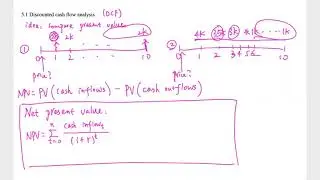 5.1 Discounted cash flow analysis (DCF)
idea: compare present value
① 2k ... 2k
0 1 2 10
price?
② 4k 3k 1k ... 1k
0 1 2 3 4 5 6 10
price?
NPV = PV (cash inflows) - PV (cash outflows)
Net present value:
NPV = n Σ t=0 cash inflows / (1+r)^t